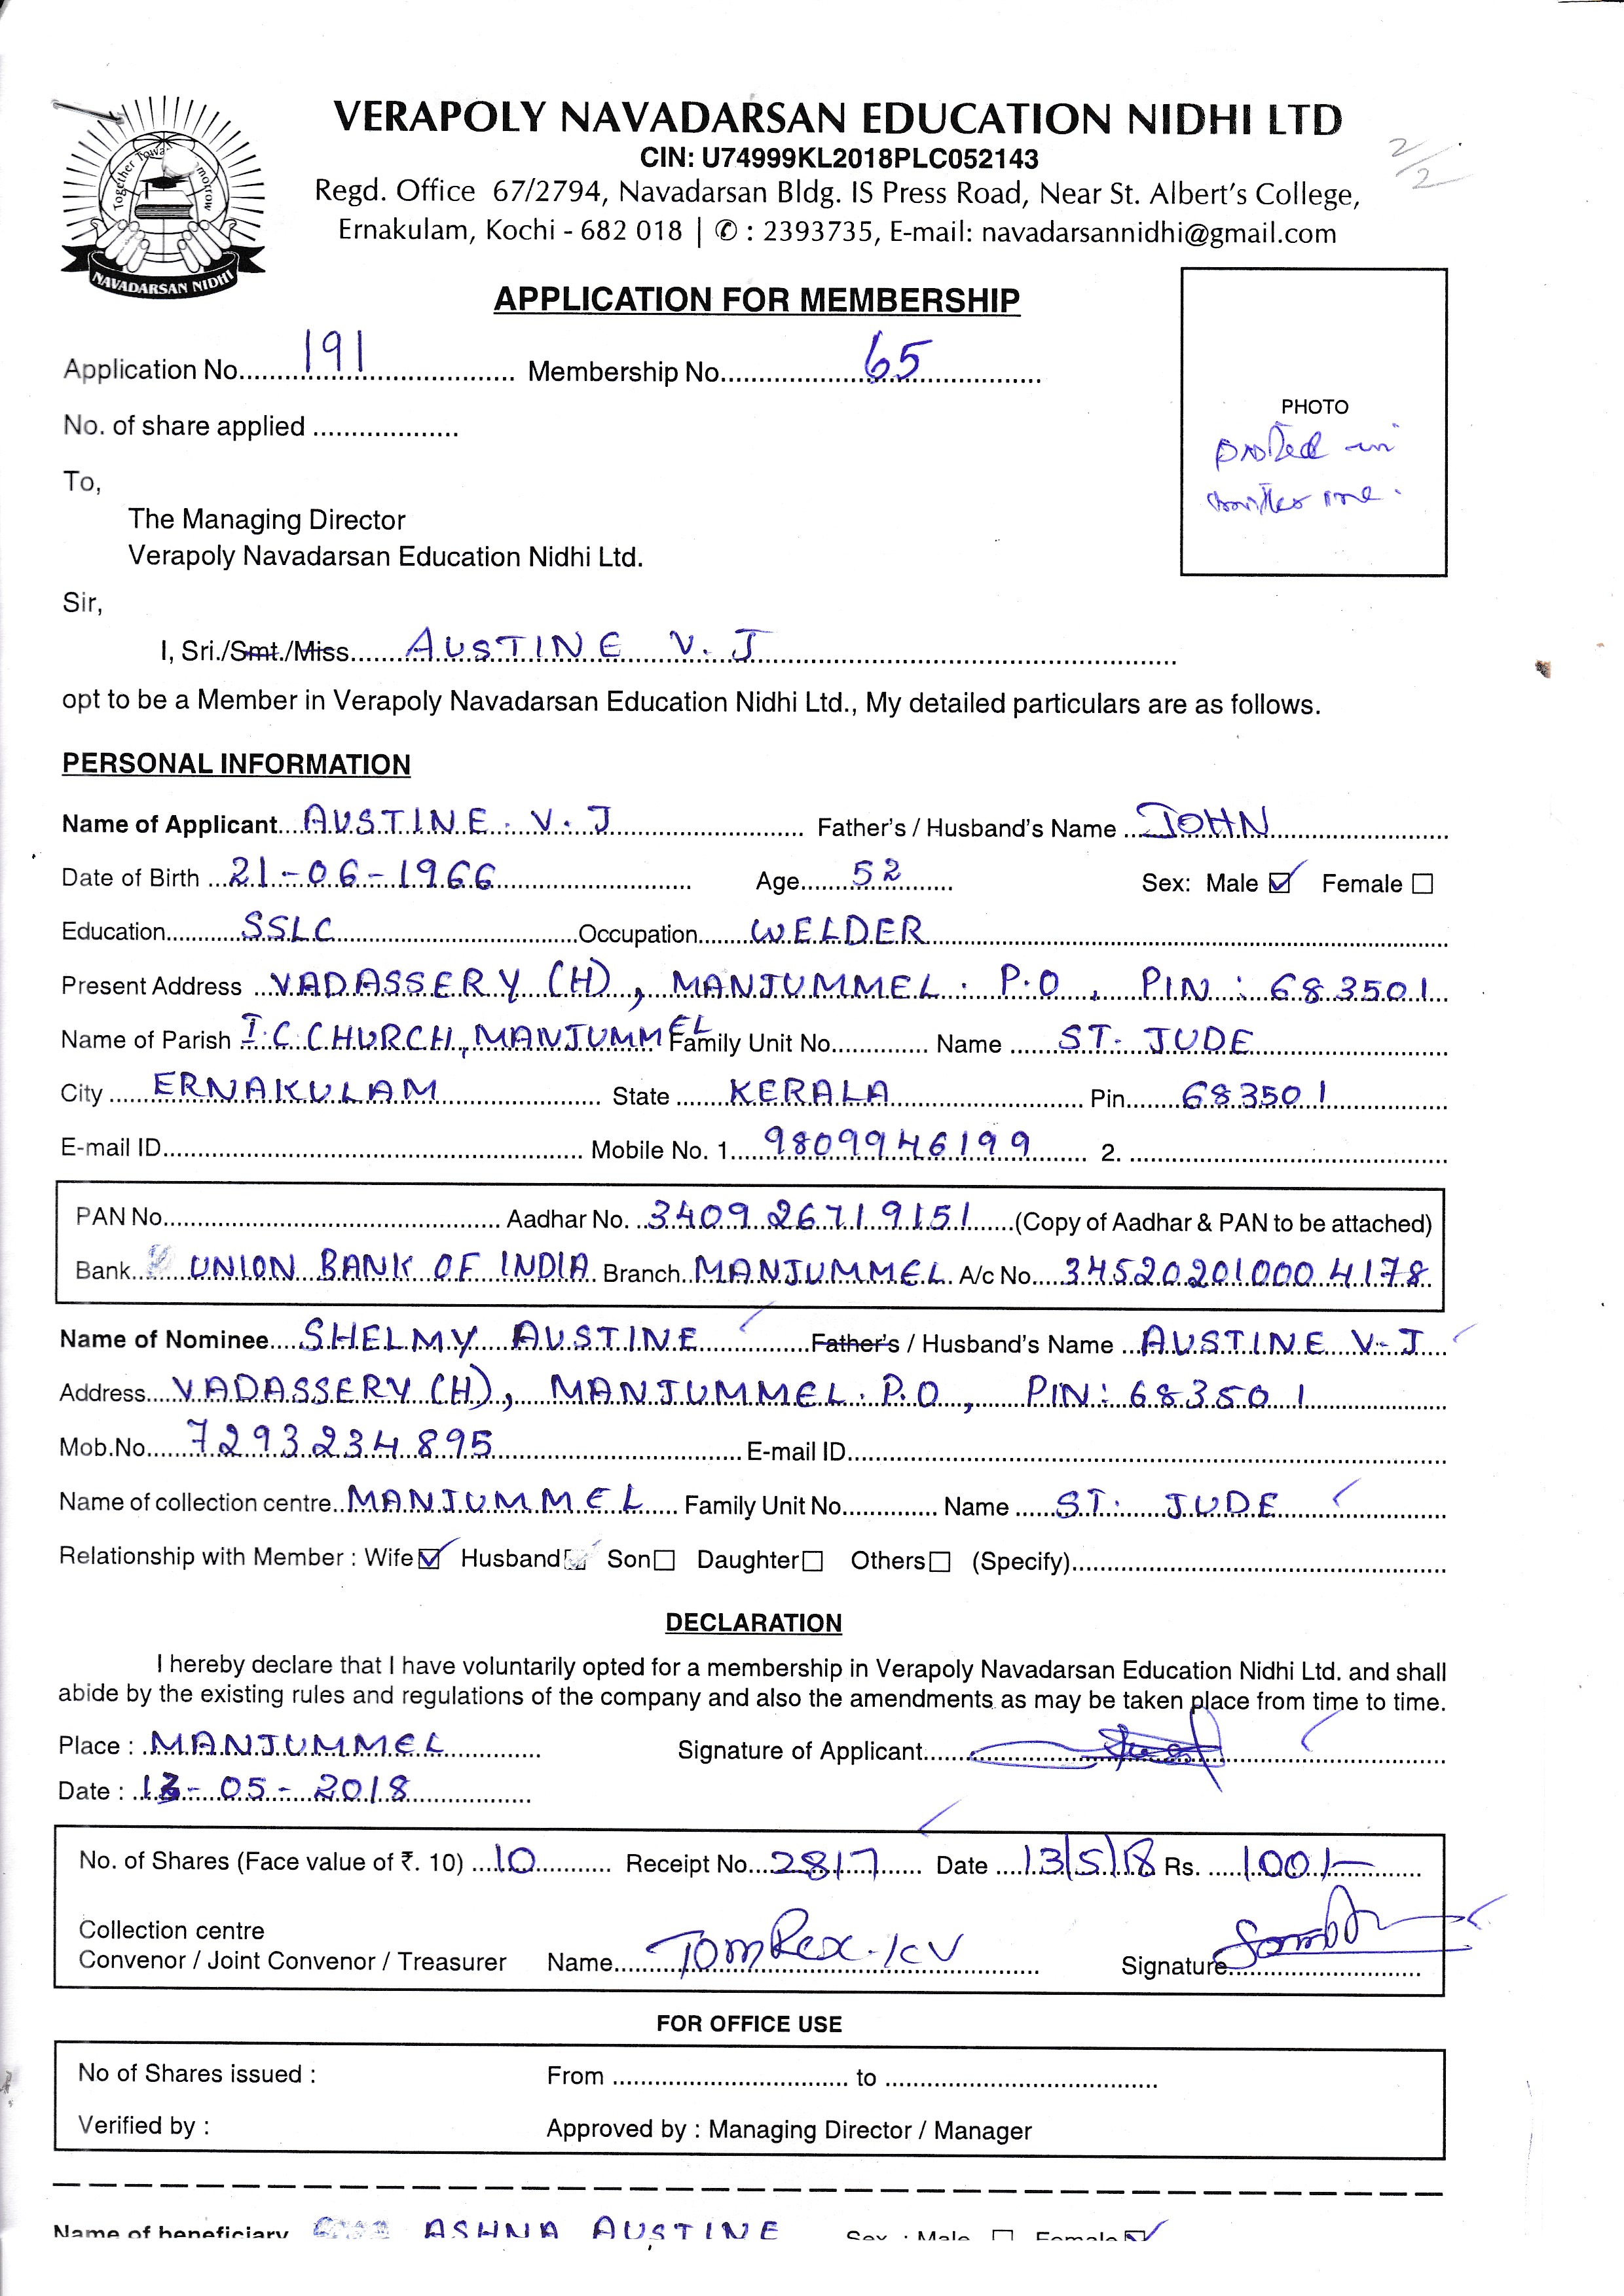 VERAPOLY NAVADARSAN EDUCATION NIDHI LTD
CIN: U74999KL2018PLC052143
Regd. Office 67/2794, Navadarsan Bldg. IS Press Road, Near St. Albert's College,
Ernakulam, Kochi - 682 018 | ✆ : 2393735, E-mail: navadarsannidhi@gmail.com
2/2
Together Towa morrow
NAVADARSAN NIDHI
APPLICATION FOR MEMBERSHIP
Application No. 191 Membership No. 65
No. of share applied
PHOTO
in
To,
The Managing Director
Verapoly Navadarsan Education Nidhi Ltd.
Sir,
I, Sri./Smt./Miss AUSTINE V. J
opt to be a Member in Verapoly Navadarsan Education Nidhi Ltd., My detailed particulars are as follows.
PERSONAL INFORMATION
Name of Applicant AUSTINE. V. J Father's / Husband's Name JOHN
Date of Birth 21-06-1966 Age 52 Sex: Male ☑ Female ☐
Education SSLC Occupation WELDER
Present Address VADASSERY (H), MANJUMMEL. P.O, PIN: 683501
Name of Parish I.C CHURCH, MANJUMMEL Family Unit No. Name ST. JUDE
City ERNAKULAM State KERALA Pin 683501
E-mail ID Mobile No. 1. 9809946199 2.
PAN No. Aadhar No. 3409 26719151 (Copy of Aadhar & PAN to be attached)
Bank UNION BANK OF INDIA Branch MANJUMMEL A/c No. 345202010004178
Name of Nominee SHELMY AUSTINE Father's / Husband's Name AUSTINE V. J
Address VADASSERY (H), MANJUMMEL. P.O, PIN: 683501
Mob.No. 7293234895 E-mail ID
Name of collection centre MANJUMMEL Family Unit No. Name ST. JUDE
Relationship with Member : Wife ☑ Husband ☐ Son ☐ Daughter ☐ Others ☐ (Specify)
DECLARATION
I hereby declare that I have voluntarily opted for a membership in Verapoly Navadarsan Education Nidhi Ltd. and shall
abide by the existing rules and regulations of the company and also the amendments as may be taken place from time to time.
Place : MANJUMMEL Signature of Applicant
Date : 13-05-2018
No. of Shares (Face value of ₹. 10) 10 Receipt No. 2817 Date 13/5/18 Rs. 100/-
Collection centre
Convenor / Joint Convenor / Treasurer Name Tom Rex. KV Signature
FOR OFFICE USE
No of Shares issued : From to
Verified by : Approved by : Managing Director / Manager
Name of beneficiary ASHNA AUSTINE Sex : Male ☐ Female ☑